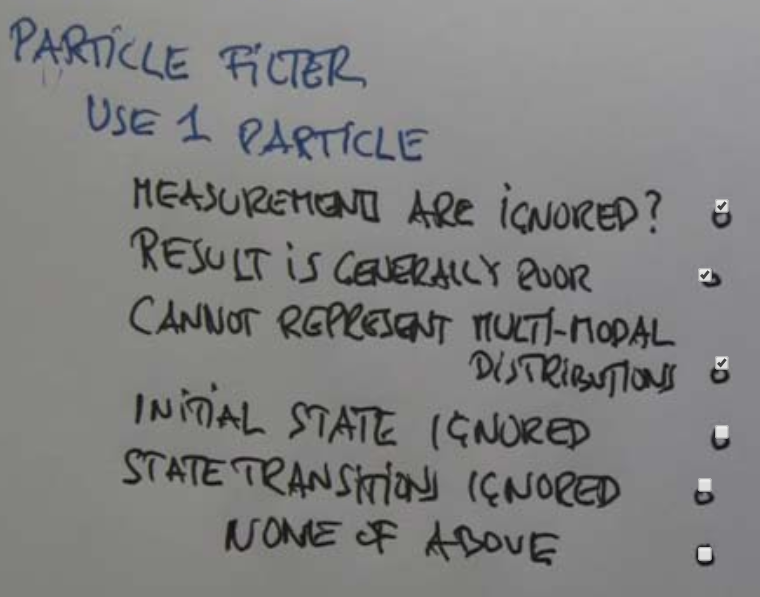 PARTICLE FILTER
USE 1 PARTICLE
MEASUREMENT ARE IGNORED?
RESULT IS GENERALLY POOR
CANNOT REPRESENT MULTI-MODAL
DISTRIBUTIONS
INITIAL STATE IGNORED
STATE TRANSITIONS IGNORED
NONE OF ABOVE